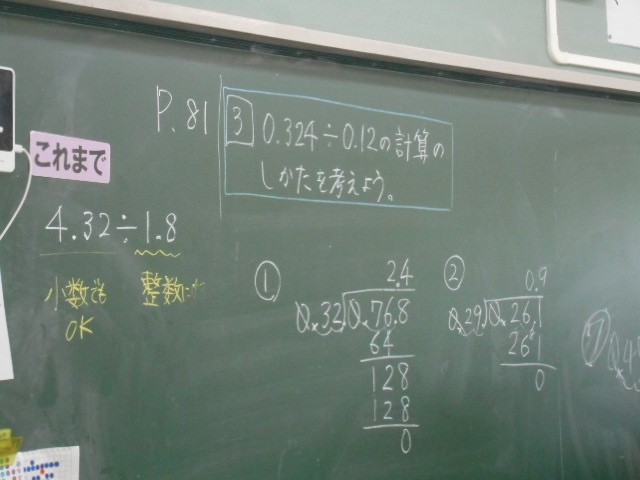 P.81
3 0.324÷0.12の計算の
しかたを考えよう。
これまで
4.32÷1.8
小数でも 整数に
OK
① 2.4
0.32 0.76.8
64
128
128
0
② 0.9
0.29 0.26.1
261
0